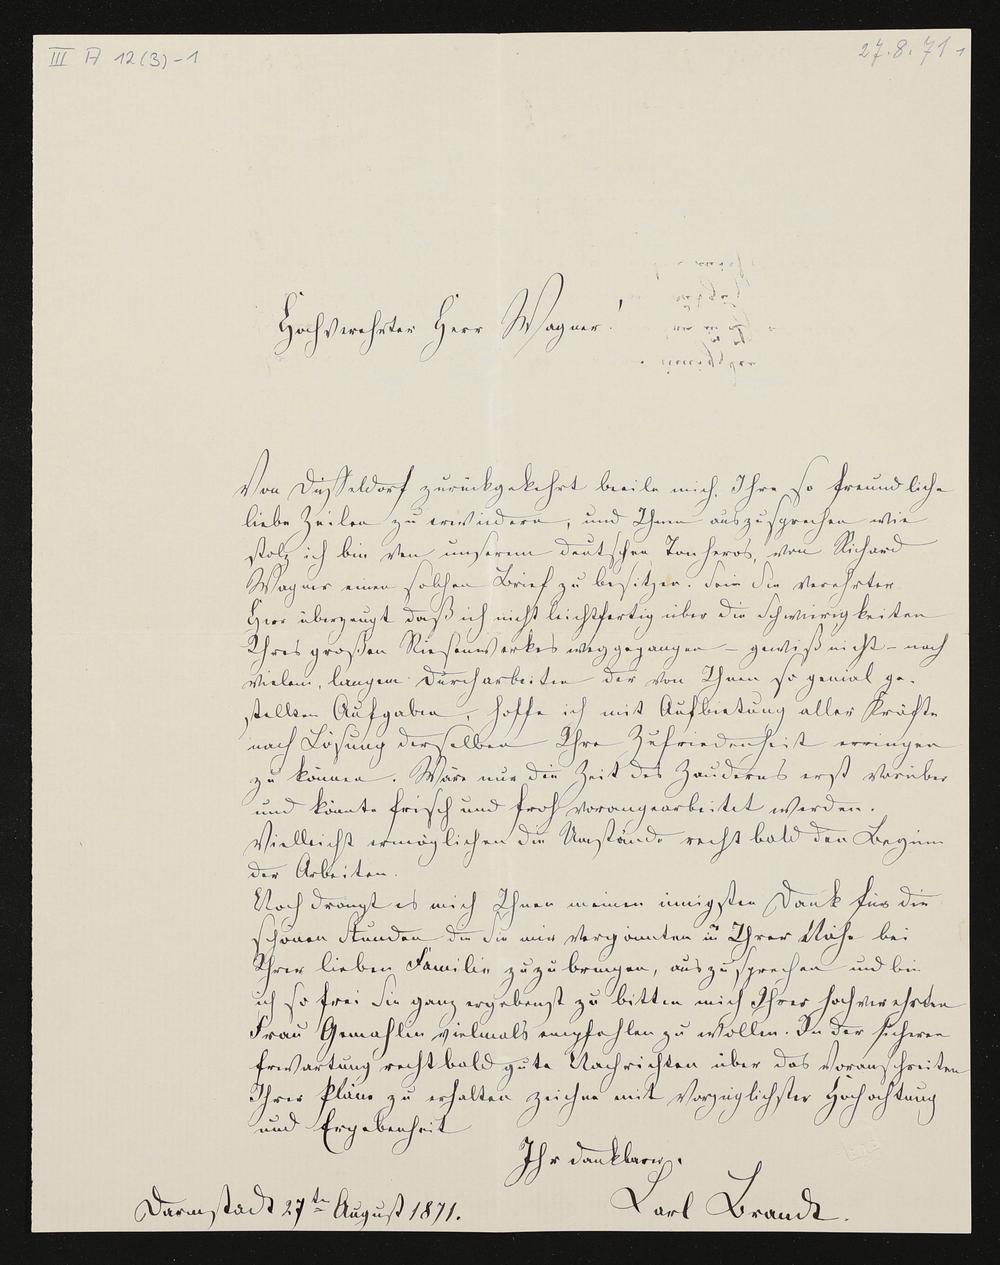 III A 12(3)-1
27.8.71 1
Hochverehrter Herr Wagner!
Von Düsseldorf zurückgekehrt beeile mich, Ihre so freundliche
liebe Zeilen zu erwiedern, und Ihnen auszusprechen wie
stolz ich bin von unserem deutschen Tonheros, von Richard
Wagner einen solchen Brief zu besitzen. Sein Sie verehrter
Herr überzeugt daß ich nicht leichtfertig über die Schwierigkeiten
Ihres großen Riesenwerkes weggegangen – gewiß nicht – nach
vielem, langem Durcharbeiten der von Ihnen so genial ge-
stellten Aufgaben, hoffe ich mit Aufbietung aller Kräfte
nach Lösung derselben Ihre Zufriedenheit erringen
zu können. Wäre nur die Zeit des Zauderns erst vorüber
und könnte frisch und froh vorangearbeitet werden.
Vielleicht ermöglichen die Umstände recht bald den Beginn
der Arbeiten.
Noch drängt es mich Ihnen meinen innigsten Dank für die
schönen Stunden die Sie mir vergönnten in Ihrer Nähe bei
Ihrer lieben Familie zuzubringen, auszusprechen und bin
ich so frei Sie ganz ergebenst zu bitten mich Ihrer hochverehrten
Frau Gemahlin vielmals empfehlen zu wollen. In der sicheren
Erwartung recht bald gute Nachrichten über das Voranschreiten
Ihrer Pläne zu erhalten zeichne mit vorzüglichster Hochachtung
und Ergebenheit
Ihr dankbarer.
Darmstadt 27ten August 1871.
Karl Brandt.